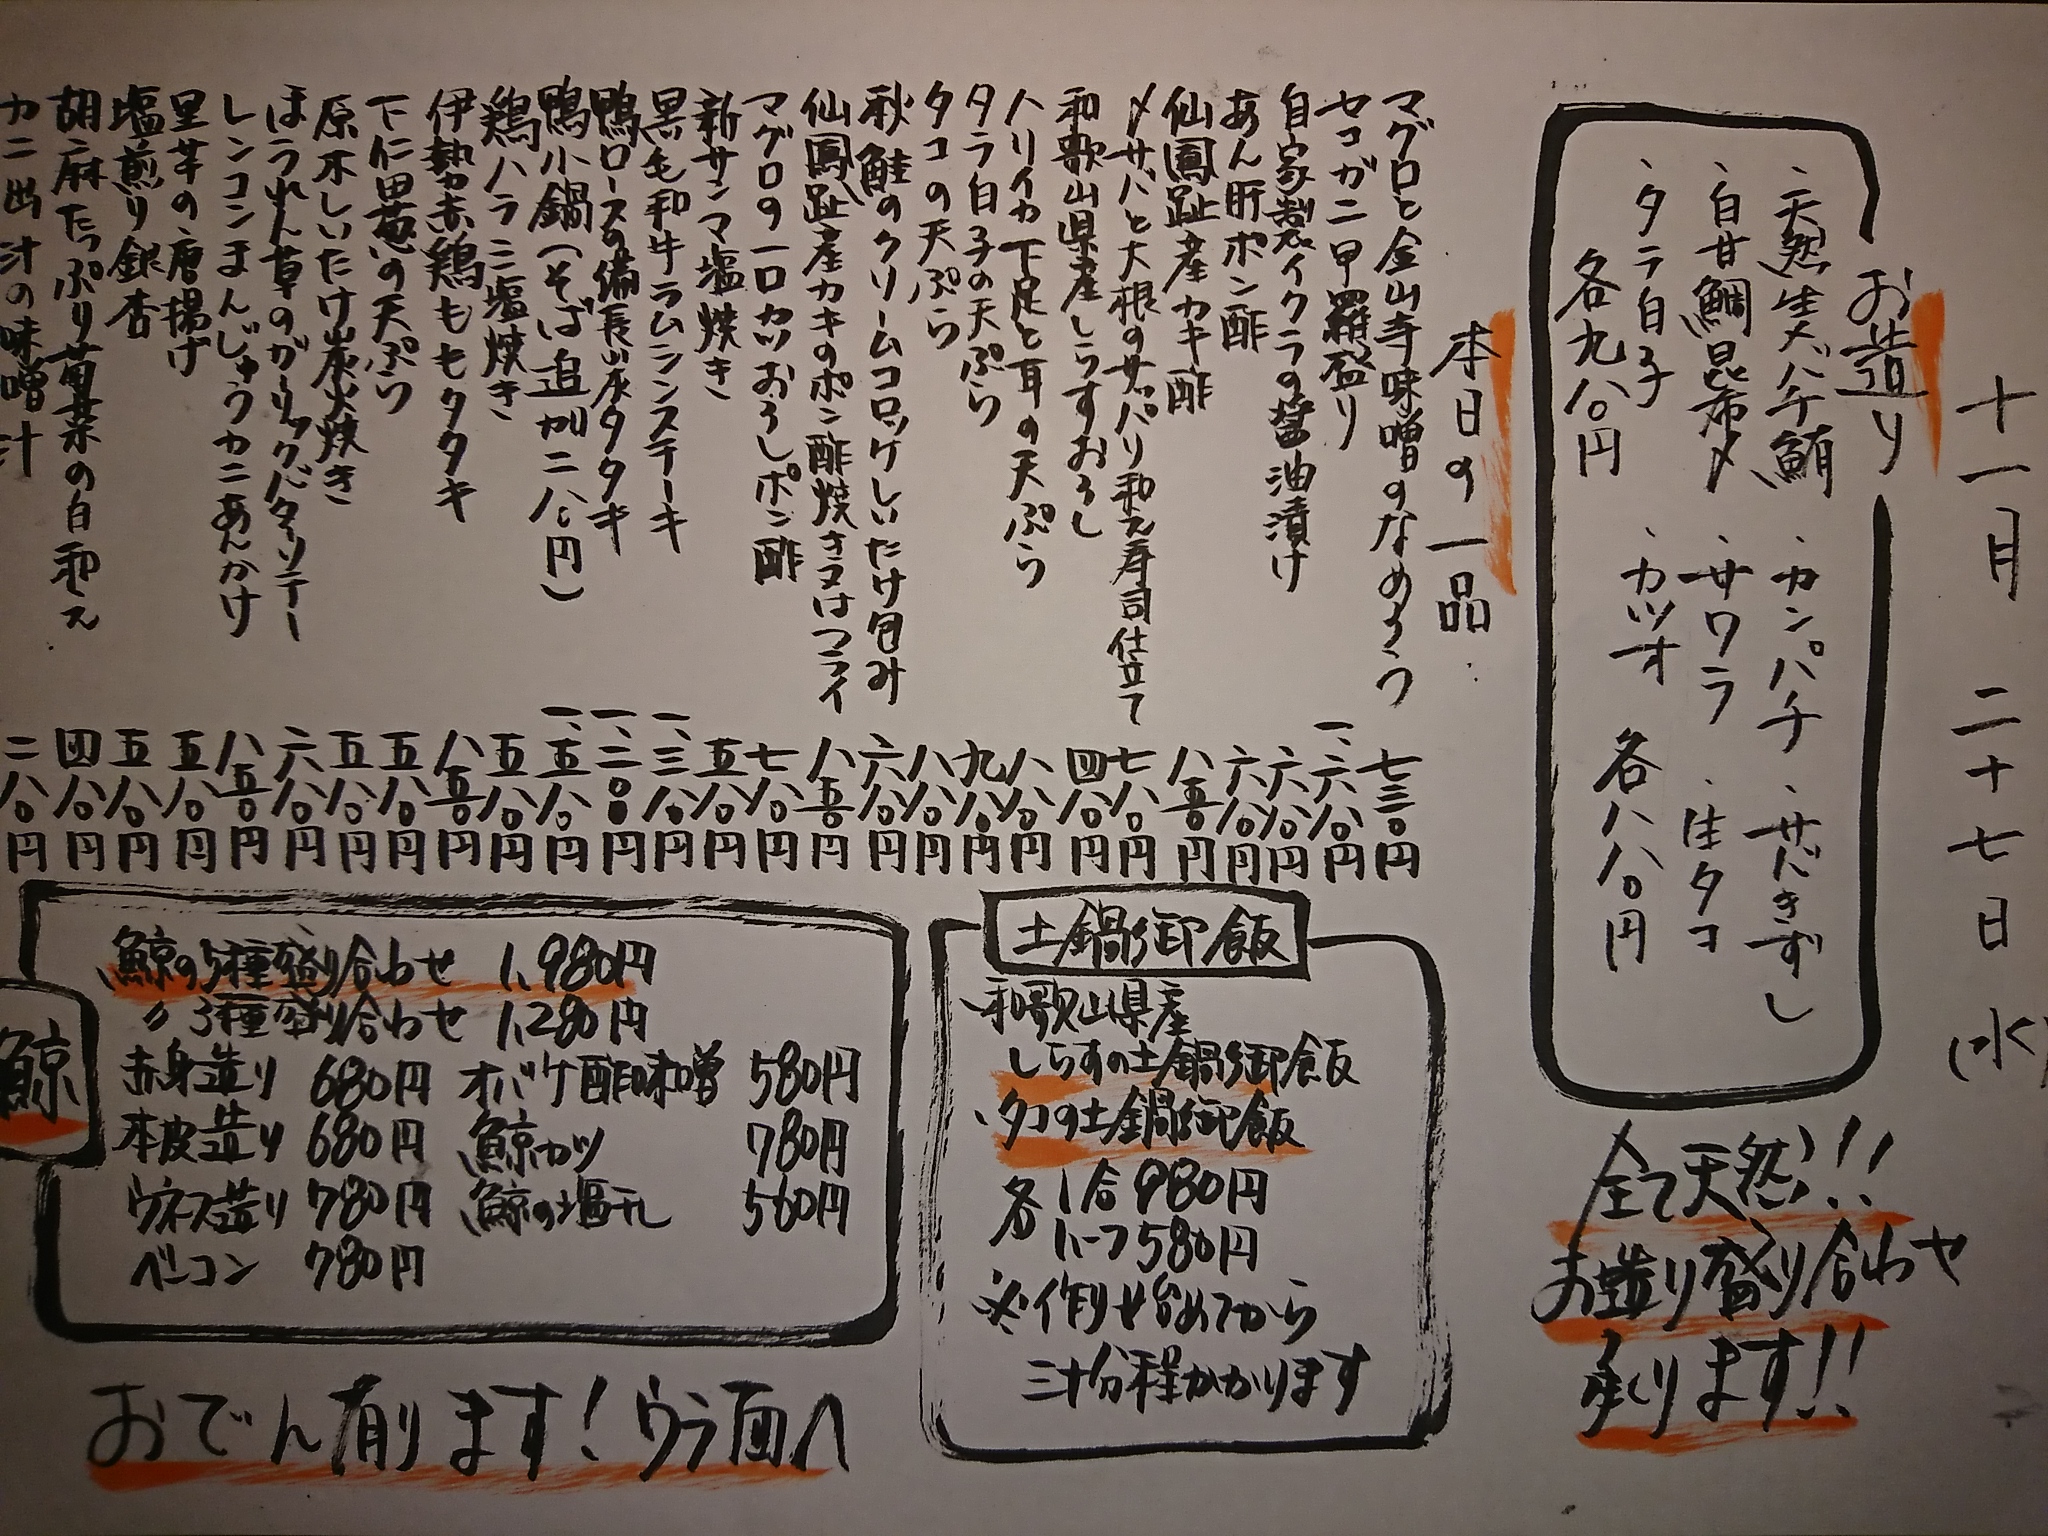 十一月 二十七日 (水)
お造り
、天然生メバチ鮪 、カンパチ 、サバきずし
、白甘鯛昆布〆 、サワラ 、生タコ
、タラ白子 、カツオ
各九八〇円 各八八〇円
全て天然!!
お造り盛り合わせ
承ります!!
本日の一品
マグロと金山寺味噌のなめろう 七三〇円
セコガニ甲羅盛り 一、六八〇円
自家製イクラの醤油漬け 六八〇円
あん肝ポン酢 六八〇円
仙鳳趾産カキ酢 八五〇円
〆サバと大根のサッパリ和え寿司仕立て 七八〇円
和歌山県産しらすおろし 四八〇円
ハリイカ下足と耳の天ぷら 八八〇円
タラ白子の天ぷら 九八〇円
タコの天ぷら 八八〇円
秋鮭のクリームコロッケしいたけ包み 六八〇円
仙鳳趾産カキのポン酢焼き又はフライ 八五〇円
マグロの一口カツおろしポン酢 七八〇円
新サンマ塩焼き 五八〇円
黒毛和牛ラムシンステーキ 一、三八〇円
鴨ロースの備長炭タタキ 一、二〇〇円
鴨小鍋(そば追加二八〇円) 一、五八〇円
鶏ハラミ塩焼き 五八〇円
伊勢赤鶏ももタタキ 八五〇円
下仁田葱の天ぷら 五八〇円
原木しいたけ炭火焼き 五八〇円
ほうれん草のガーリックバターソテー 六八〇円
レンコンまんじゅうカニあんかけ 八五〇円
里芋の唐揚げ 五八〇円
塩煎り銀杏 五八〇円
胡麻たっぷり菊菜の白和え 四八〇円
カニ出汁の味噌汁 二八〇円
土鍋御飯
和歌山県産
しらすの土鍋御飯
、タコの土鍋御飯
各 1合980円
ハーフ580円
※作り始めてから
三十分程かかります
鯨
、鯨の5種盛り合わせ 1,980円
〃 3種盛り合わせ 1,280円
赤身造り 680円 オバケ酢味噌 580円
本皮造り 680円 鯨カツ 780円
ウネス造り 780円 鯨の塩干し 560円
ベーコン 780円
おでん有ります!ウラ面へ